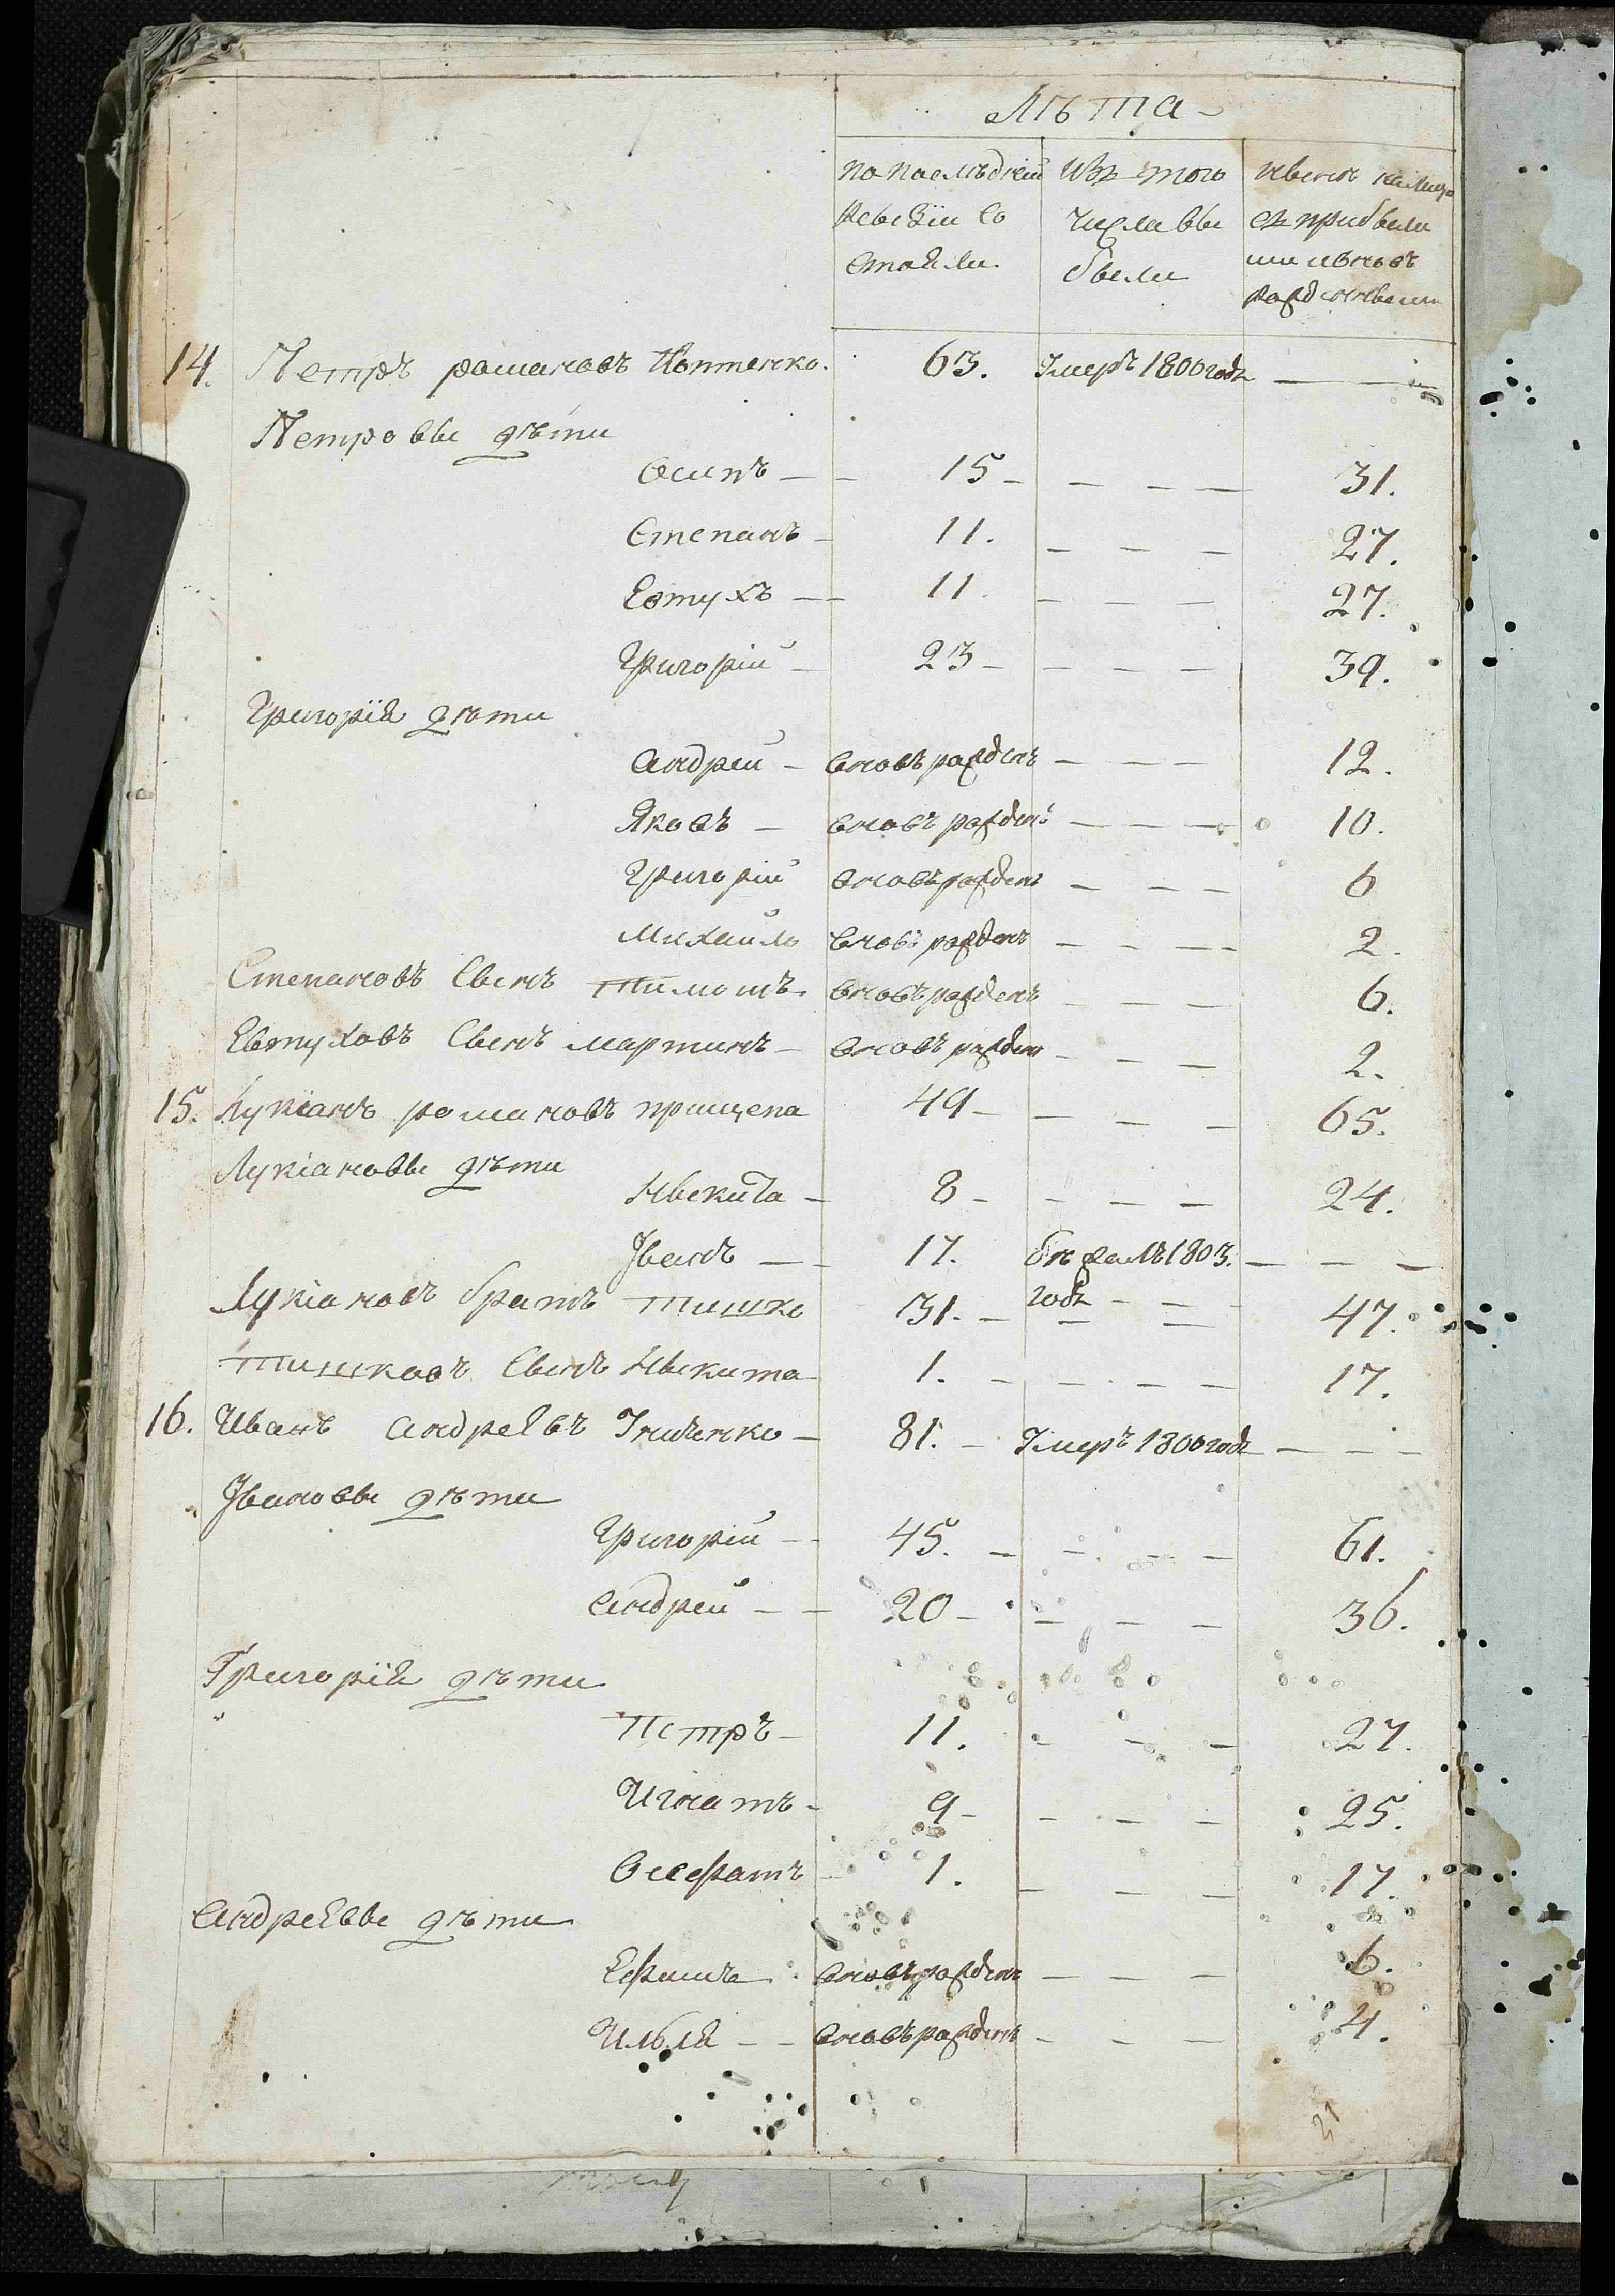 Лѣта
по последней Изъ того
ревизіи со числа вы
стояли. были
14. Петръ романовъ 63. Умеръ 1800 годѣ
Петровы дѣти
Осипъ 15 31.
Степанъ 11. 27.
Евтухъ 11 27.
Григорій 23 39.
Григорія дѣти
Андрей вновь рожденъ 12.
Яковъ вновь рожденъ 10.
Григорій вновь рожденъ 6
Михайло вновь рожденъ 2.
Степановъ Сынъ Тимошъ вновь рожденъ 6.
Евтуховъ Сынъ мартинъ вновь рожденъ 2.
15. Лукіанъ романовъ прищепа 49 65.
Лукіановы дѣти
Ныкита 8 24.
Іванъ 17. бѣжалъ 1803.
годѣ
Лукіановъ братъ тишко 31. 47.
тишковъ Сынъ Ныкита 1. 17.
16. Иванъ Андреевъ 81. Умеръ 1800 годѣ
Івановы дѣти
Григорій 45. 61.
Андрей 20 36.
Григорія дѣти
Петръ 11. 27.
Игнатъ 9 25.
1. 17.
Андреевы дѣти
Ефимъ вновь рожденъ 6.
Илья вновь рожденъ 4.
31